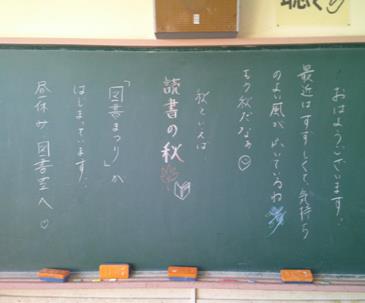 おはようございます。
最近はすずしくて気持ち
のよい風がふいているね
もう秋だなぁ
秋といえば
読書の秋
「図書まつり」が
はじまっています。
昼休み図書室へ♡